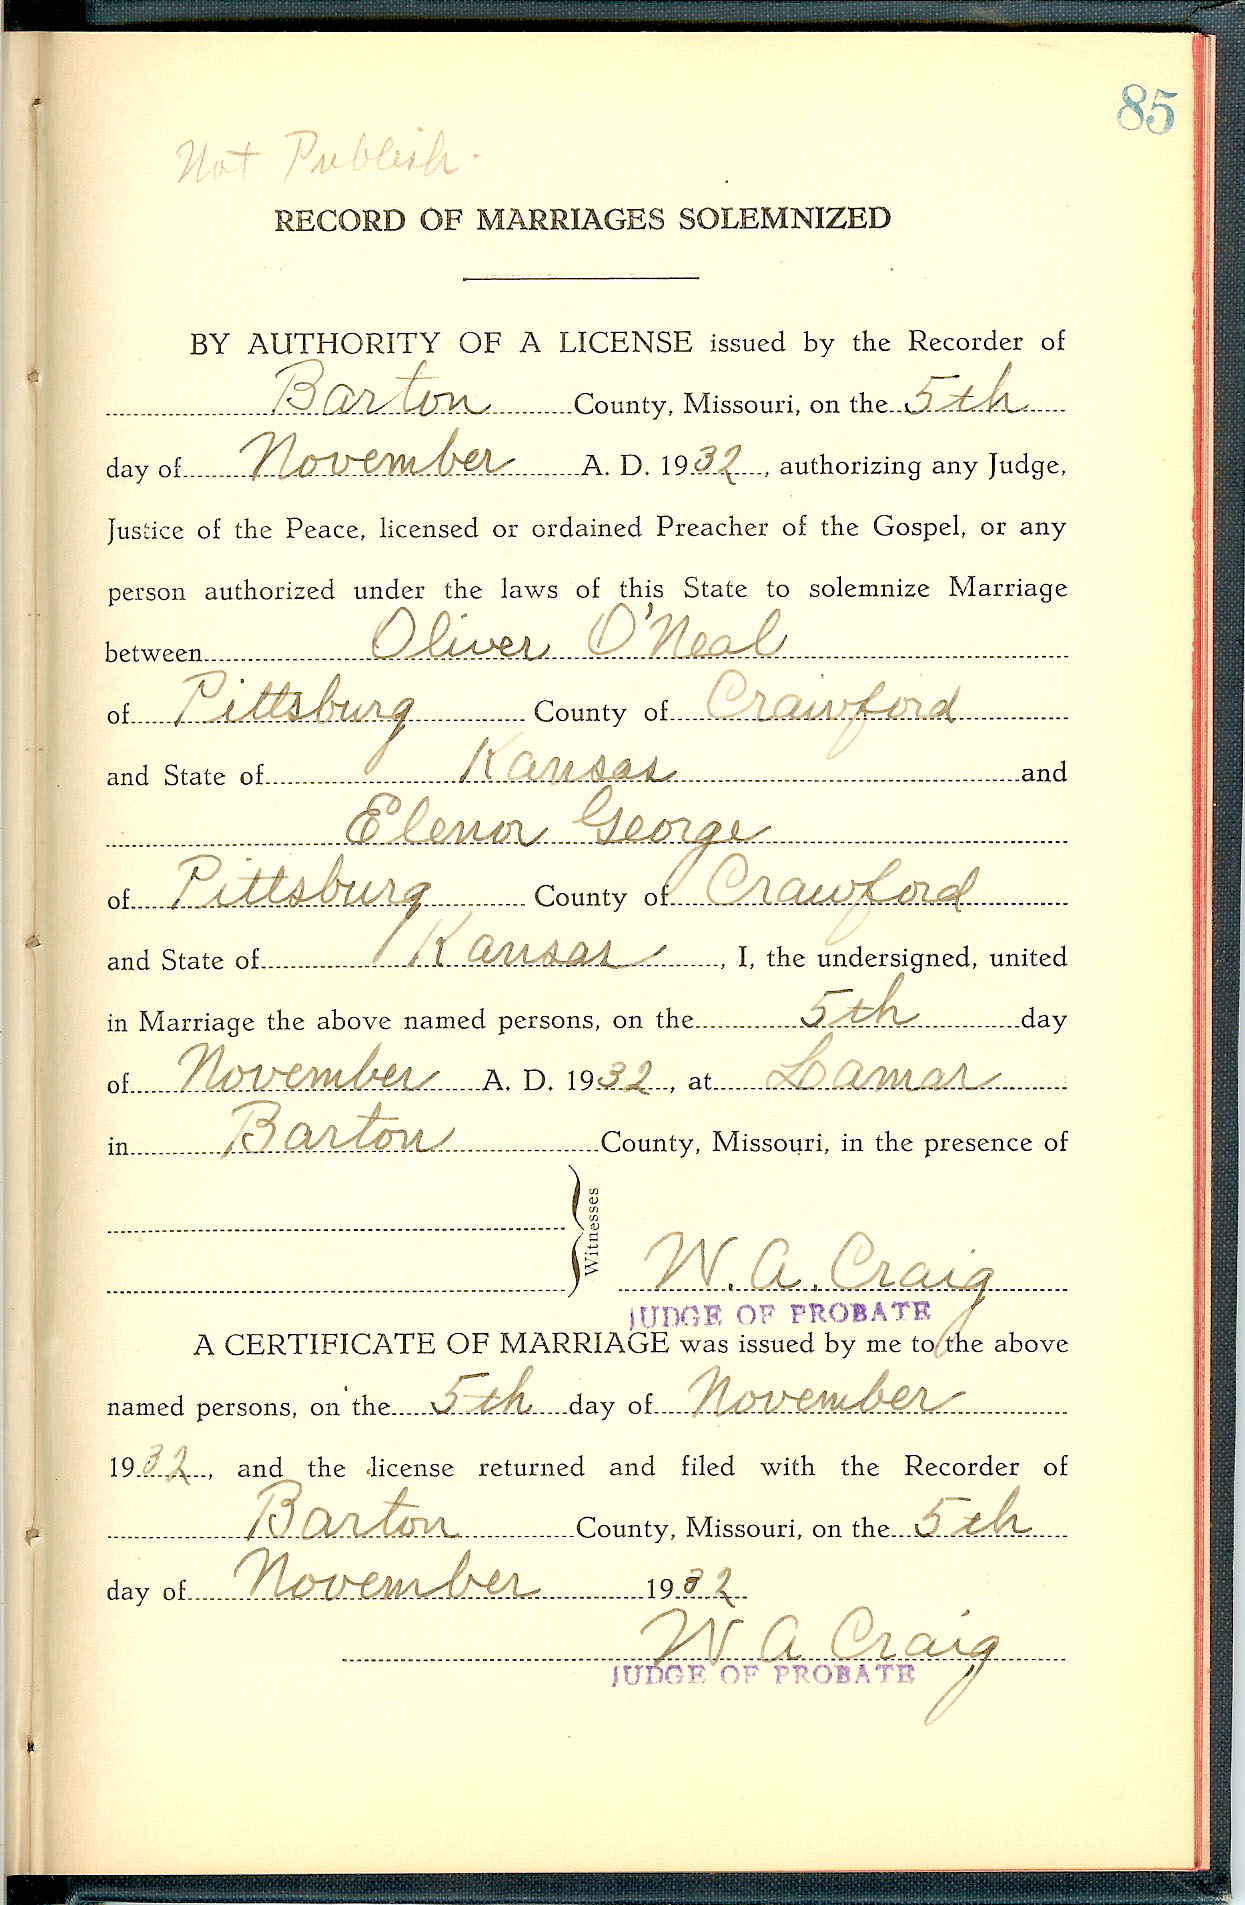 85
Not Publish.
RECORD OF MARRIAGES SOLEMNIZED
BY AUTHORITY OF A LICENSE issued by the Recorder of
Barton County, Missouri, on the 5th
day of November A. D. 1932, authorizing any Judge,
Justice of the Peace, licensed or ordained Preacher of the Gospel, or any
person authorized under the laws of this State to solemnize Marriage
between Oliver O'Neal
of Pittsburg County of Crawford
and State of Kansas and
Elenor George
of Pittsburg County of Crawford
and State of Kansas, I, the undersigned, united
in Marriage the above named persons, on the 5th day
of November A. D. 1932, at Lamar
in Barton County, Missouri, in the presence of
Witnesses
W. A. Craig
JUDGE OF PROBATE
A CERTIFICATE OF MARRIAGE was issued by me to the above
named persons, on the 5th day of November
1932, and the license returned and filed with the Recorder of
Barton County, Missouri, on the 5th
day of November 1932
W A Craig
JUDGE OF PROBATE